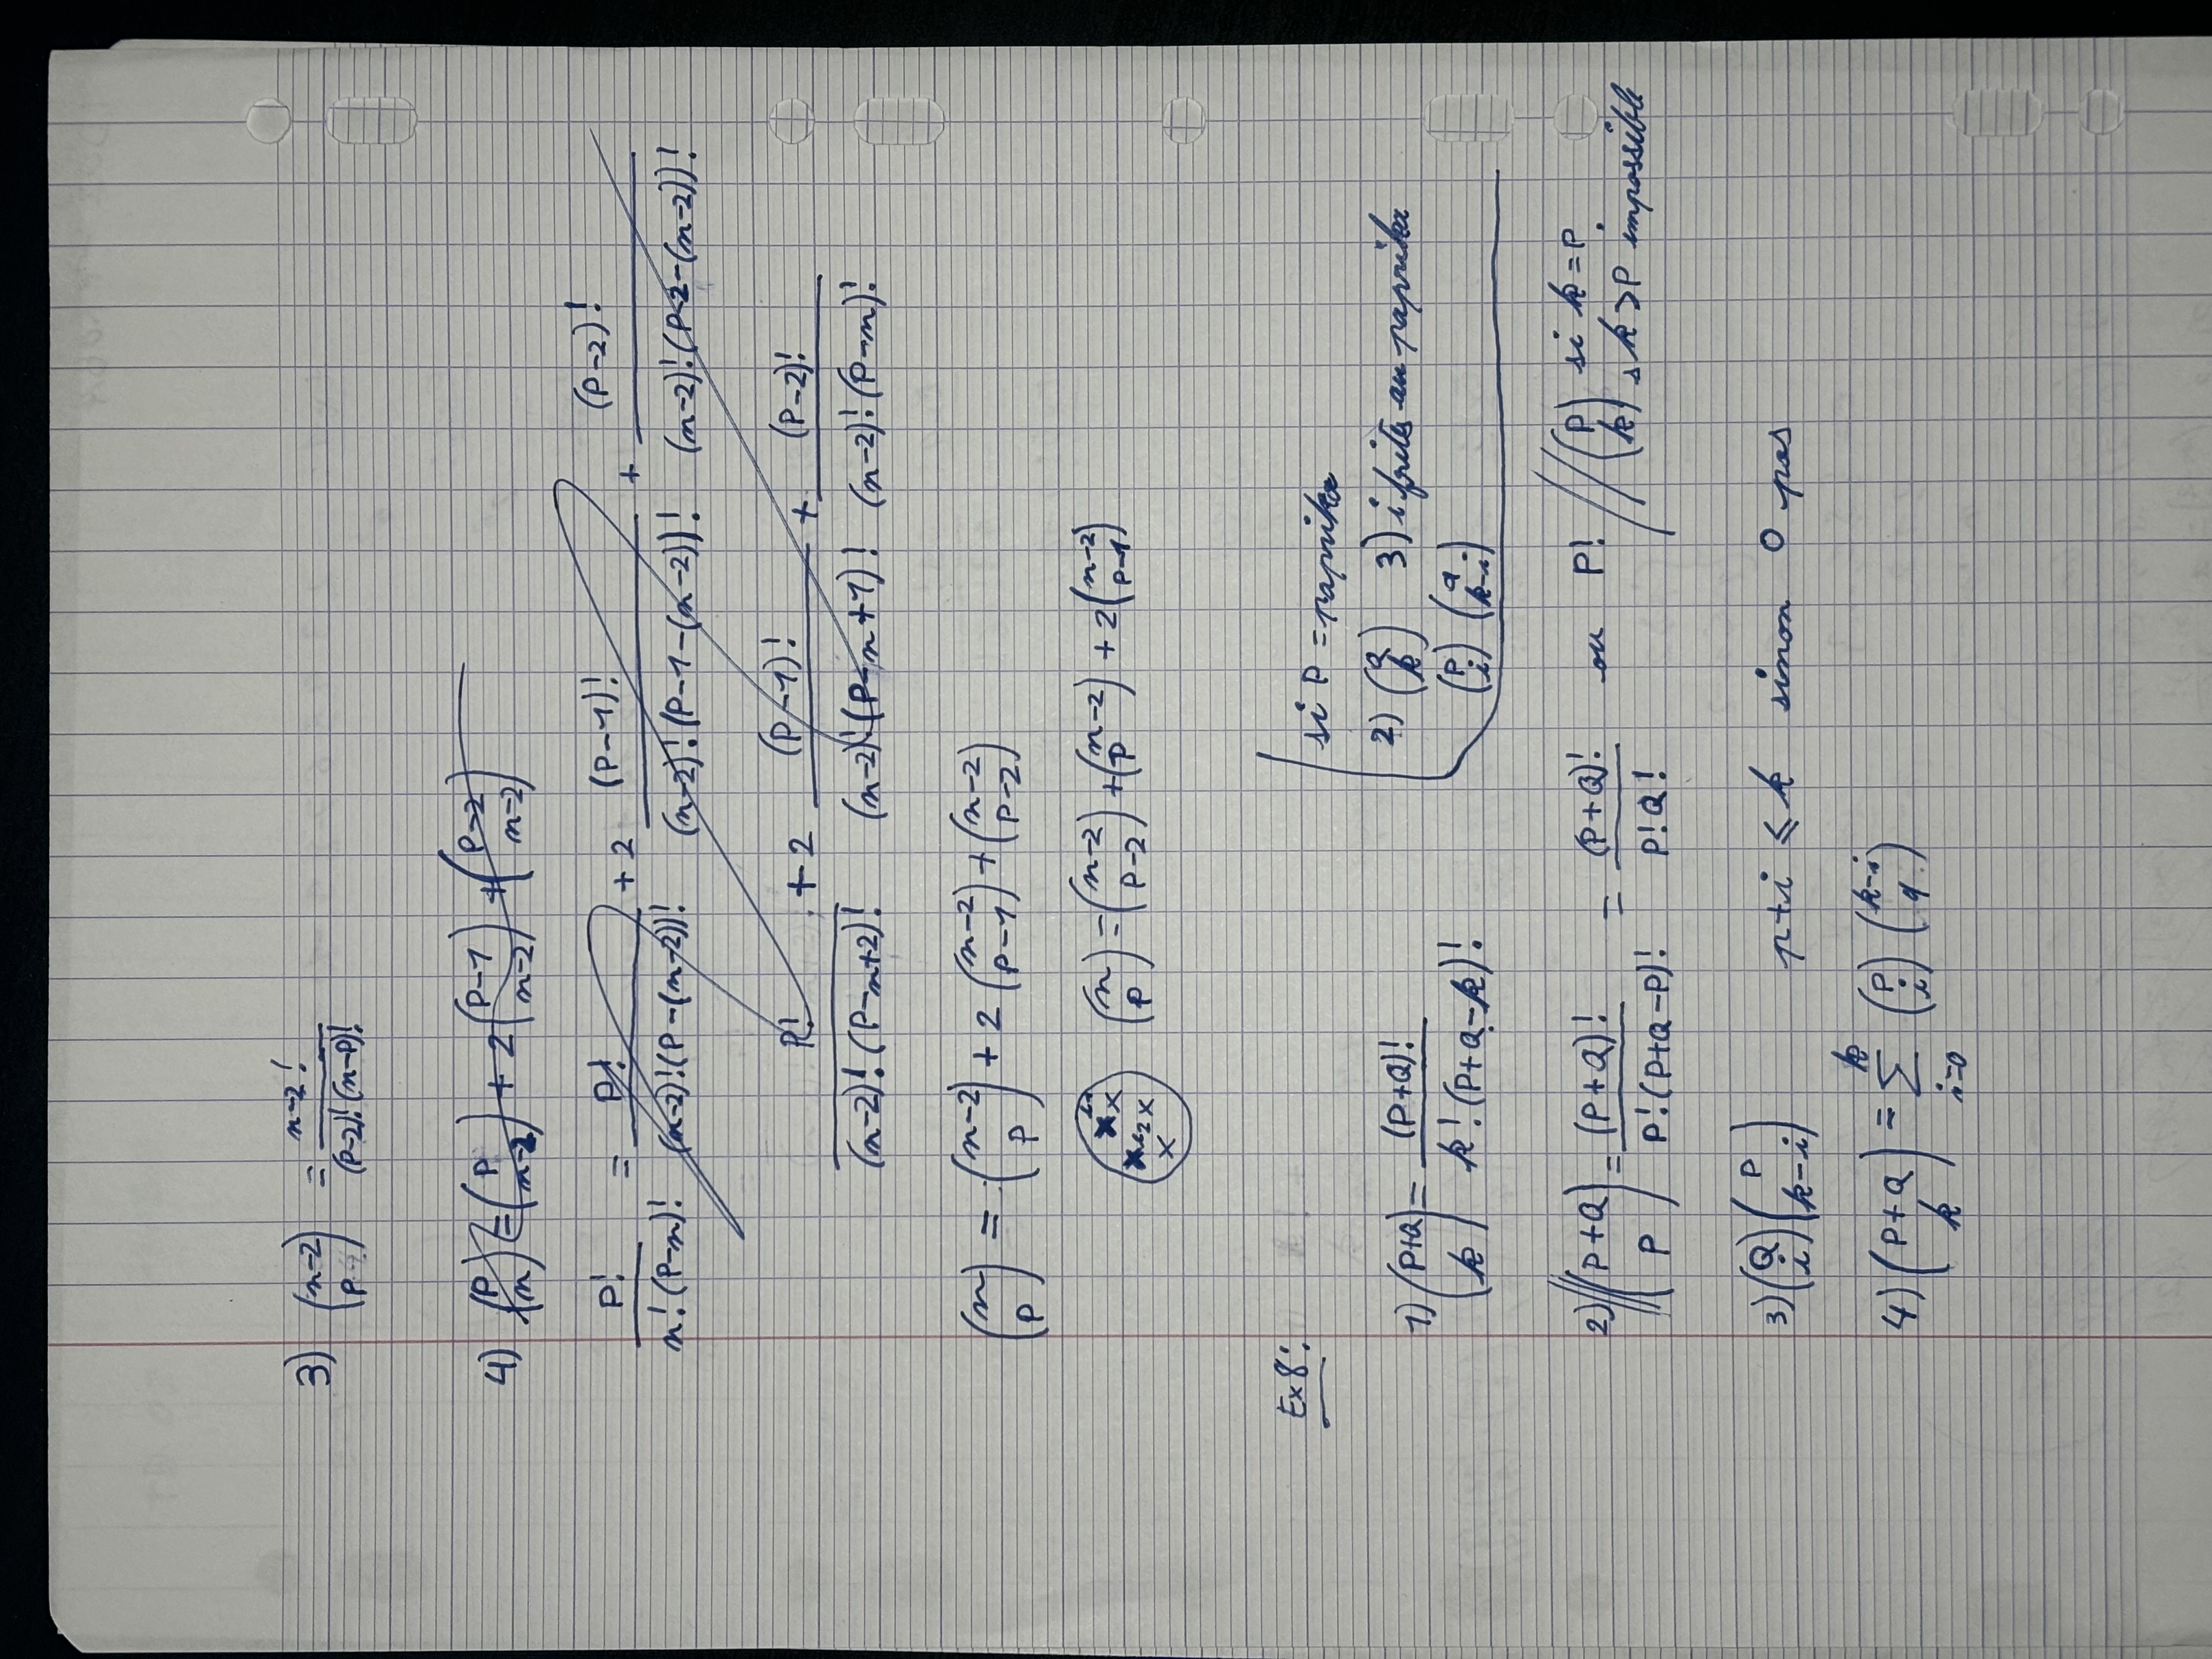 3) (n-2 / P) = n-2! / (P-2)! (n-P)!
4) (P / n) = (P / n-2) + 2 (P-1 / n-2) + (P-2 / n-2)
P! / n! (P-n)! = P! / (n-2)! (P-(n-2))! + 2 (P-1)! / (n-2)! (P-1-(n-2))! + (P-2)! / (n-2)! (P-2-(n-2))!
P! / (n-2)! (P-n+2)! + 2 (P-1)! / (n-2)! (P-n+1)! + (P-2)! / (n-2)! (P-n)!
(n / P) = (n-2 / P) + 2 (n-2 / P-1) + (n-2 / P-2)
(n / P) = (n-2 / P-2) + (n-2 / P) + 2 (n-2 / P-1)
Ex 8:
si P = paprika
2) (Q / k) 3) i frites au paprika
(P / i) (q / k-i)
1) (P+Q / k) = (P+Q)! / k! (P+Q-k)!
2) (P+Q / P) = (P+Q)! / P! (P+Q-P)! = (P+Q)! / P! Q! ou P! // (P / k) si k = P
k > P impossible
3) (Q / i) (P / k-i) p+i ≤ k sinon 0 pos
4) (P+Q / k) = k Σ i=0 (P / i) (k-i / q)